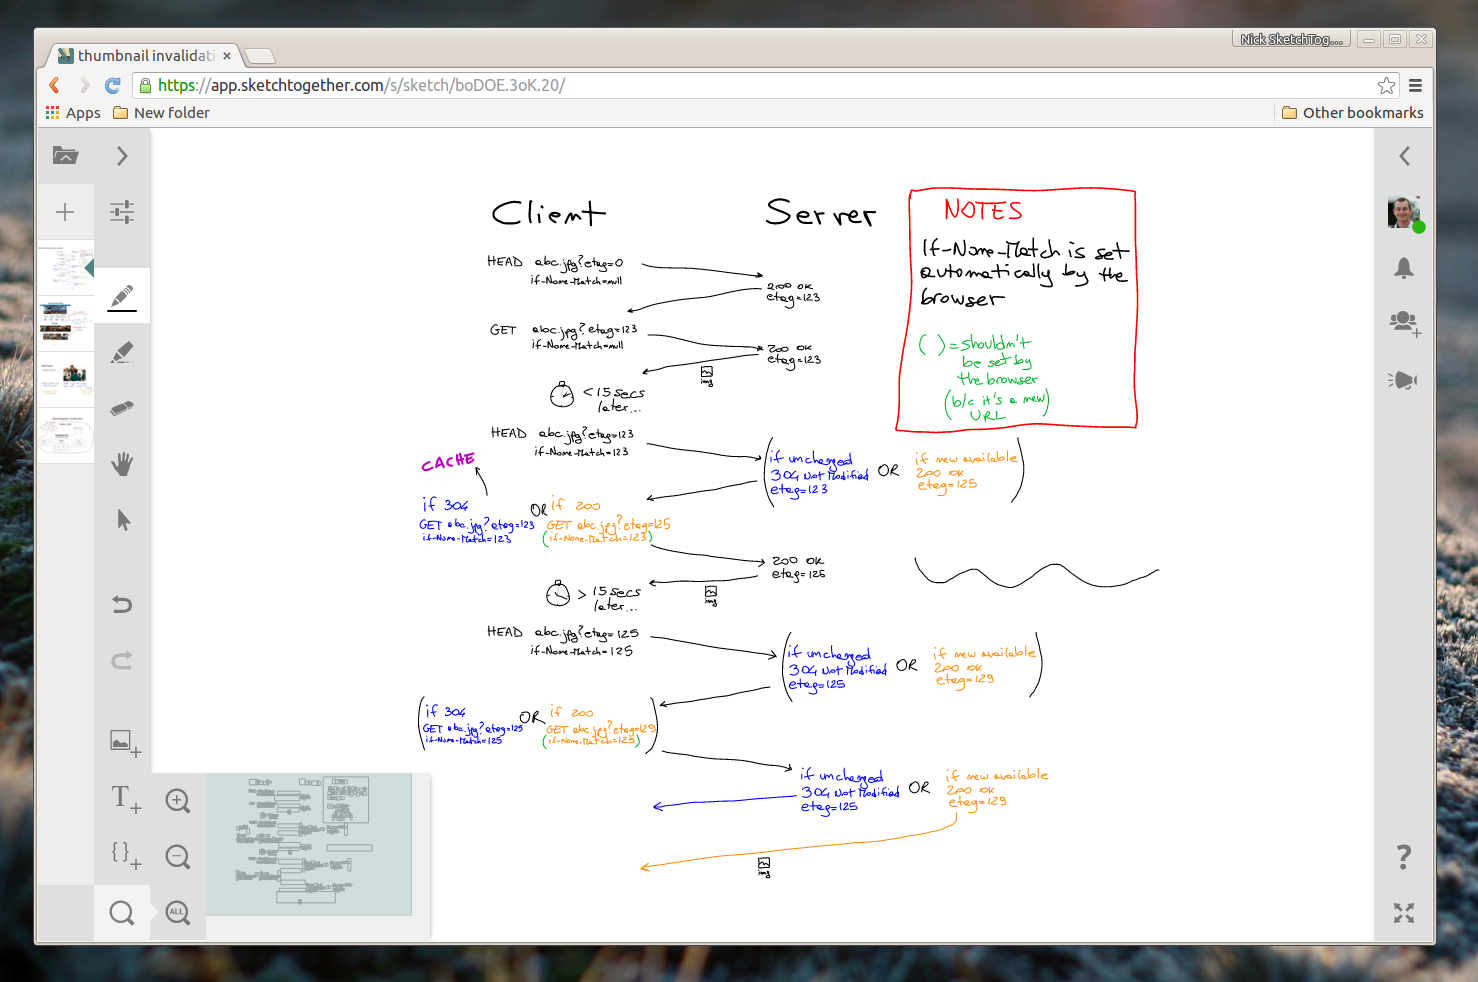 Nick SketchTog...
thumbnail invalidati
https://app.sketchtogether.com/s/sketch/boDOE.3oK.20/
Apps
New folder
Other bookmarks
Client
Server
NOTES
If-None-Match is set
automatically by the
browser
( ) = shouldn't
be set by
the browser
(b/c it's a new
URL)
HEAD abc.jpg?etag=0
if-None-Match=null
200 OK
etag=123
GET abc.jpg?etag=123
if-None-Match=null
200 OK
etag=123
img
< 15 secs
later...
HEAD abc.jpg?etag=123
if-None-Match=123
CACHE
(if unchanged
304 Not Modified
etag=123
OR
if new available
200 OK
etag=125)
if 304
GET abc.jpg?etag=123
if-None-Match=123
OR
if 200
GET abc.jpg?etag=125
(if-None-Match=123)
200 OK
etag=125
img
> 15 secs
later...
HEAD abc.jpg?etag=125
if-None-Match=125
(if unchanged
304 Not Modified
etag=125
OR
if new available
200 OK
etag=129)
(if 304
GET abc.jpg?etag=125
if-None-Match=125
OR
if 200
GET abc.jpg?etag=129
(if-None-Match=125))
if unchanged
304 Not Modified
etag=125
OR
if new available
200 OK
etag=129
img
T+
{}+
ALL
?